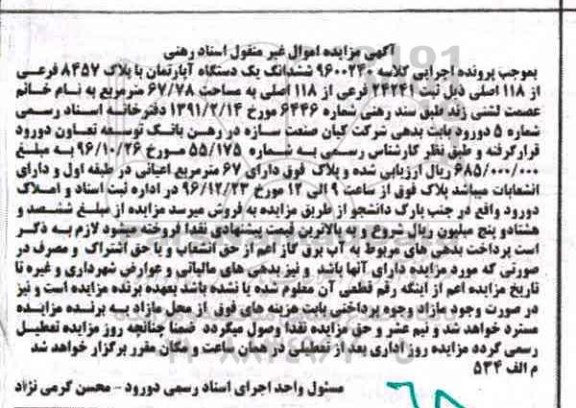 آگهی مزایده اموال غیر منقول اسناد رهنی
بموجب پرونده اجرایی کلاسه ۹۶۰۰۲۴۰ ششدانگ یک دستگاه آپارتمان با پلاک ۸۴۵۷ فرعی
از ۱۱۸ اصلی ذیل ثبت ۲۴۲۴۱ فرعی از ۱۱۸ اصلی به مساحت ۶۷/۷۸ مترمربع به نام خانم
عصمت لشنی زند طبق سند رهنی شماره ۶۴۴۶ مورخ ۱۳۹۱/۲/۱۴ دفترخانه اسناد رسمی
شماره ۵ دورود بابت بدهی شرکت کیان صنعت سازه در رهن بانک توسعه تعاون دورود
قرارگرفته و طبق نظر کارشناس رسمی به شماره ۵۵/۱۷۵ مورخ ۹۶/۱۰/۲۶ به مبلغ
۶۸۵/۰۰۰/۰۰۰ ریال ارزیابی شده و پلاک فوق دارای ۶۷ مترمربع اعیانی در طبقه اول و دارای
انشعابات میباشد پلاک فوق از ساعت ۹ الی ۱۲ مورخ ۹۶/۱۲/۲۳ در اداره ثبت اسناد و املاک
دورود واقع در جنب پارک دانشجو از طریق مزایده به فروش میرسد مزایده از مبلغ ششصد و
هشتادو پنج میلیون ریال شروع و به بالاترین قیمت پیشنهادی نقدا فروخته میشود لازم به ذکر
است پرداخت بدهی های مربوط به آب برق گاز اعم از حق انشعاب و یا حق اشتراک و مصرف در
صورتی که مورد مزایده دارای آنها باشد و نیز بدهی های مالیاتی و عوارض شهرداری و غیره تا
تاریخ مزایده اعم از اینکه رقم قطعی آن معلوم شده یا نشده باشد بعهده برنده مزایده است و نیز
در صورت وجود مازاد وجوه پرداختی بابت هزینه های فوق از محل مازاد به برنده مزایده
مسترد خواهد شد و نیم عشر و حق مزایده نقدا وصول میگردد ضمنا چنانچه روز مزایده تعطیل
رسمی گردد مزایده روز اداری بعد از تعطیلی در همان ساعت و مکان مقرر برگزار خواهد شد
م الف ۵۳۴
مسئول واحد اجرای اسناد رسمی دورود - محسن کرمی نژاد